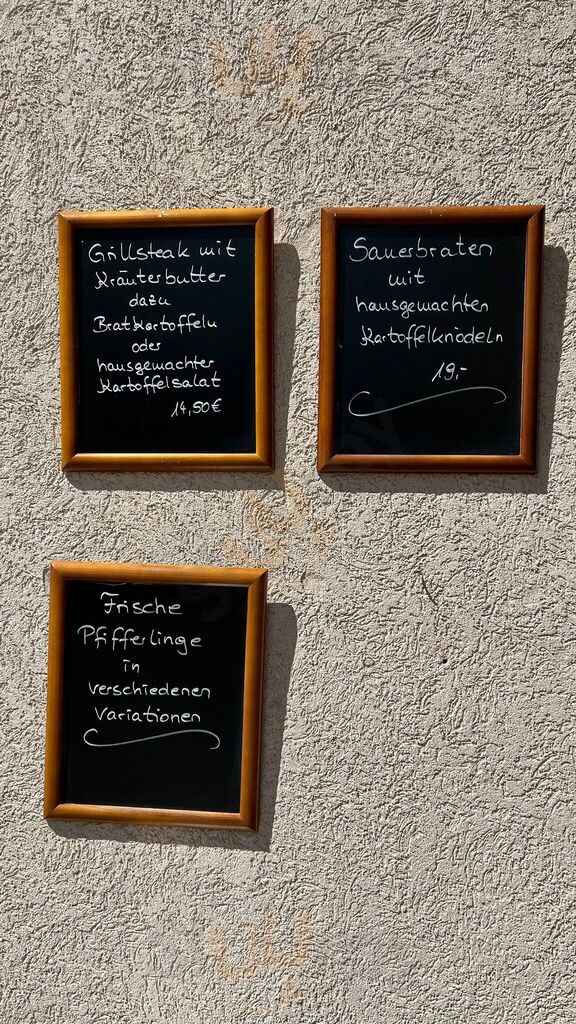 Grillsteak mit
Kräuterbutter
dazu
Bratkartoffeln
oder
hausgemachter
Kartoffelsalat
14,50€
Sauerbraten
mit
hausgemachten
Kartoffelknödeln
19,-
Frische
Pfifferlinge
in
verschiedenen
Variationen